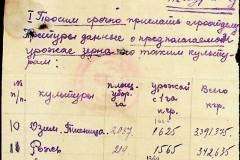 I Просим срочно прислать агроотделу
быстры данные о предполагаемом
урожае зерна по таким культу
рам:
№ п/п. культуры площ. убор. га урожай с 1 га кгр. Всего кгр.
1) Озим. Пшеница 2087 1625 3391375
Рожь 219 1565 342685